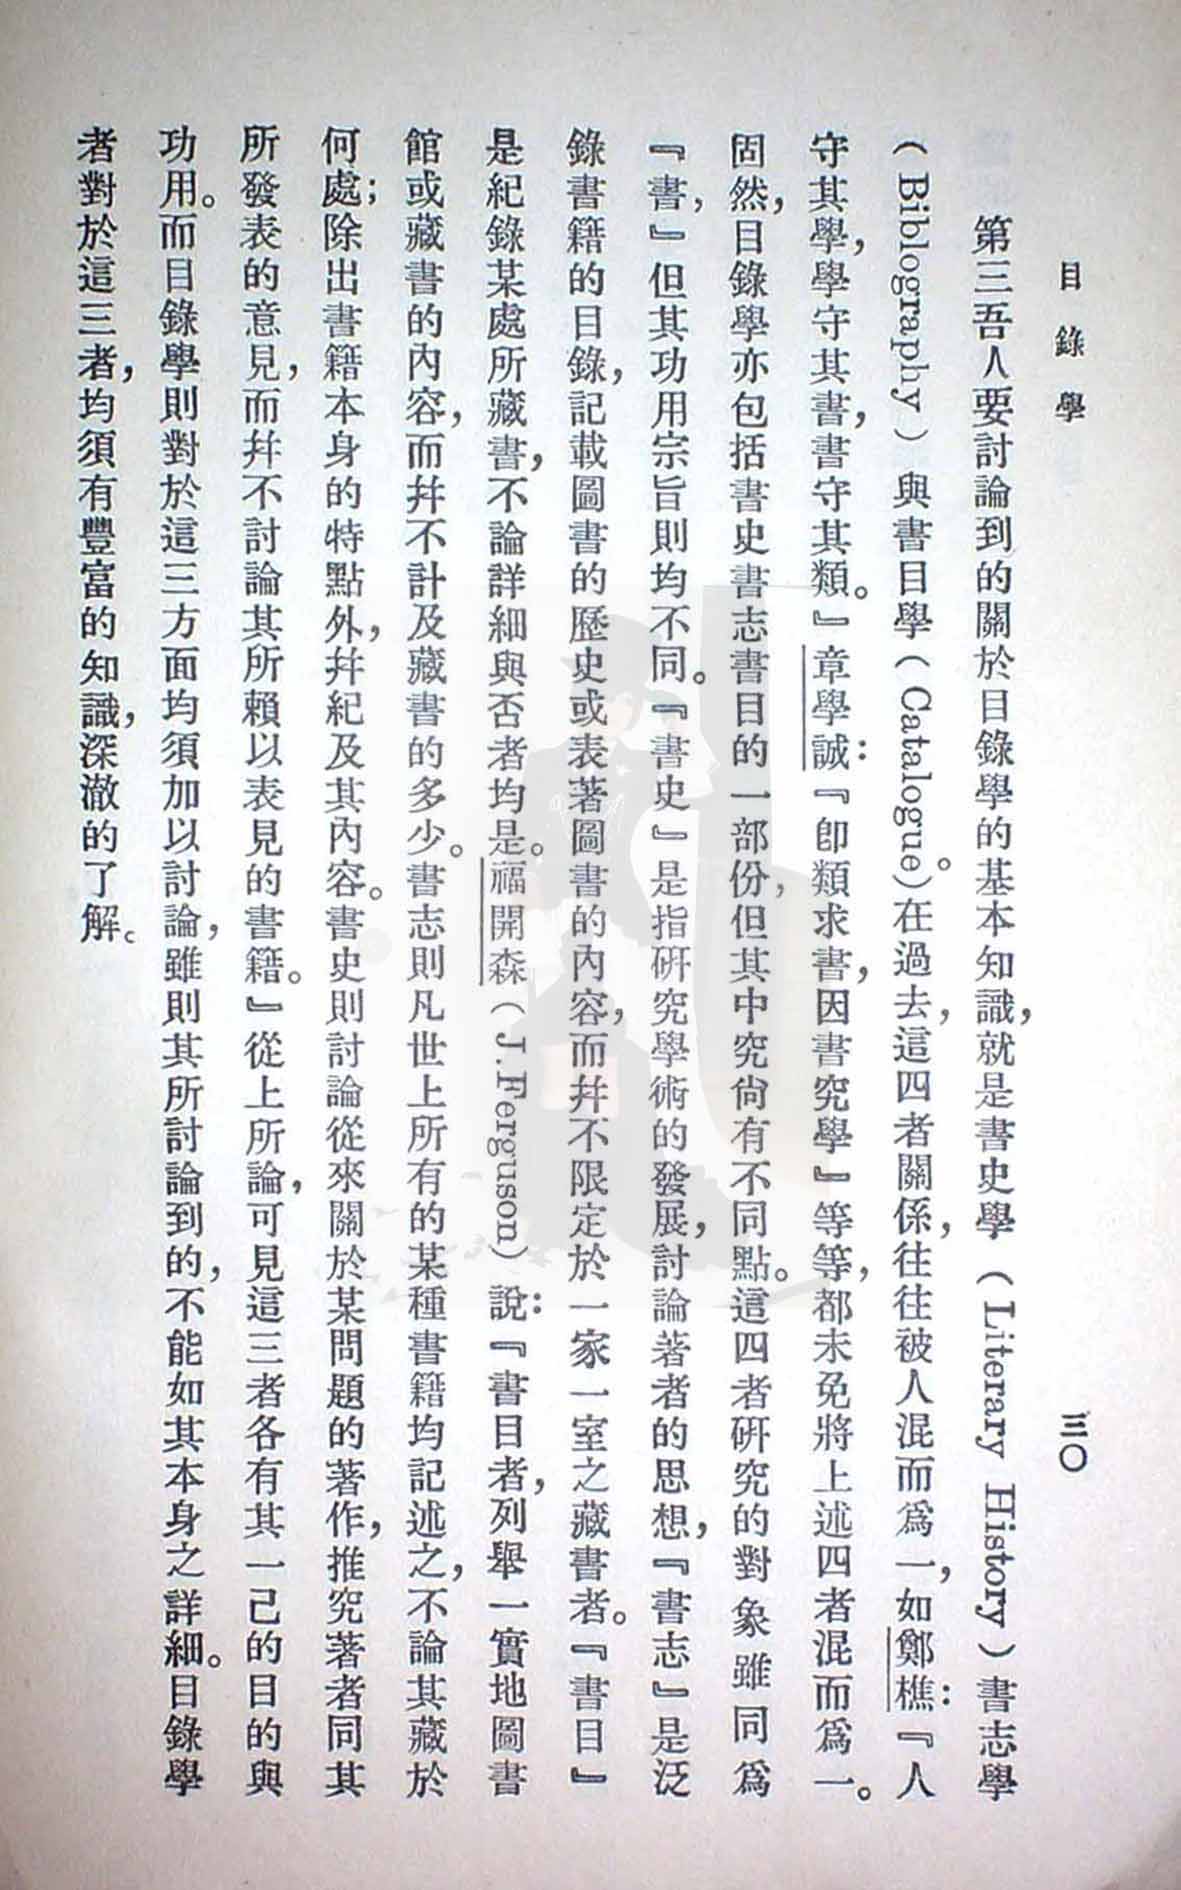 目錄學
三〇
第三吾人要討論到的關於目錄學的基本知識，就是書史學（Literary History）書志學
（Biblography）與書目學（Catalogue）。在過去，這四者關係，往往被人混而爲一，如鄭樵：『人
守其學，學守其書，書守其類。』章學誠：『卽類求書，因書究學』等等，都未免將上述四者混而爲一。
固然，目錄學亦包括書史書志書目的一部份，但其中究尙有不同點。這四者硏究的對象雖同爲
『書，』但其功用宗旨則均不同。『書史』是指硏究學術的發展，討論著者的思想，『書志』是泛
錄書籍的目錄，記載圖書的歷史或表著圖書的內容，而幷不限定於一家一室之藏書者。『書目』
是紀錄某處所藏書，不論詳細與否者均是。福開森（J.Ferguson）說：『書目者，列舉一實地圖書
館或藏書的內容，而幷不計及藏書的多少。書志則凡世上所有的某種書籍均記述之，不論其藏於
何處；除出書籍本身的特點外，幷紀及其內容。書史則討論從來關於某問題的著作，推究著者同其
所發表的意見，而幷不討論其所賴以表見的書籍。』從上所論，可見這三者各有其一己的目的與
功用。而目錄學則對於這三方面均須加以討論，雖則其所討論到的，不能如其本身之詳細。目錄學
者對於這三者，均須有豐富的知識，深澈的了解。